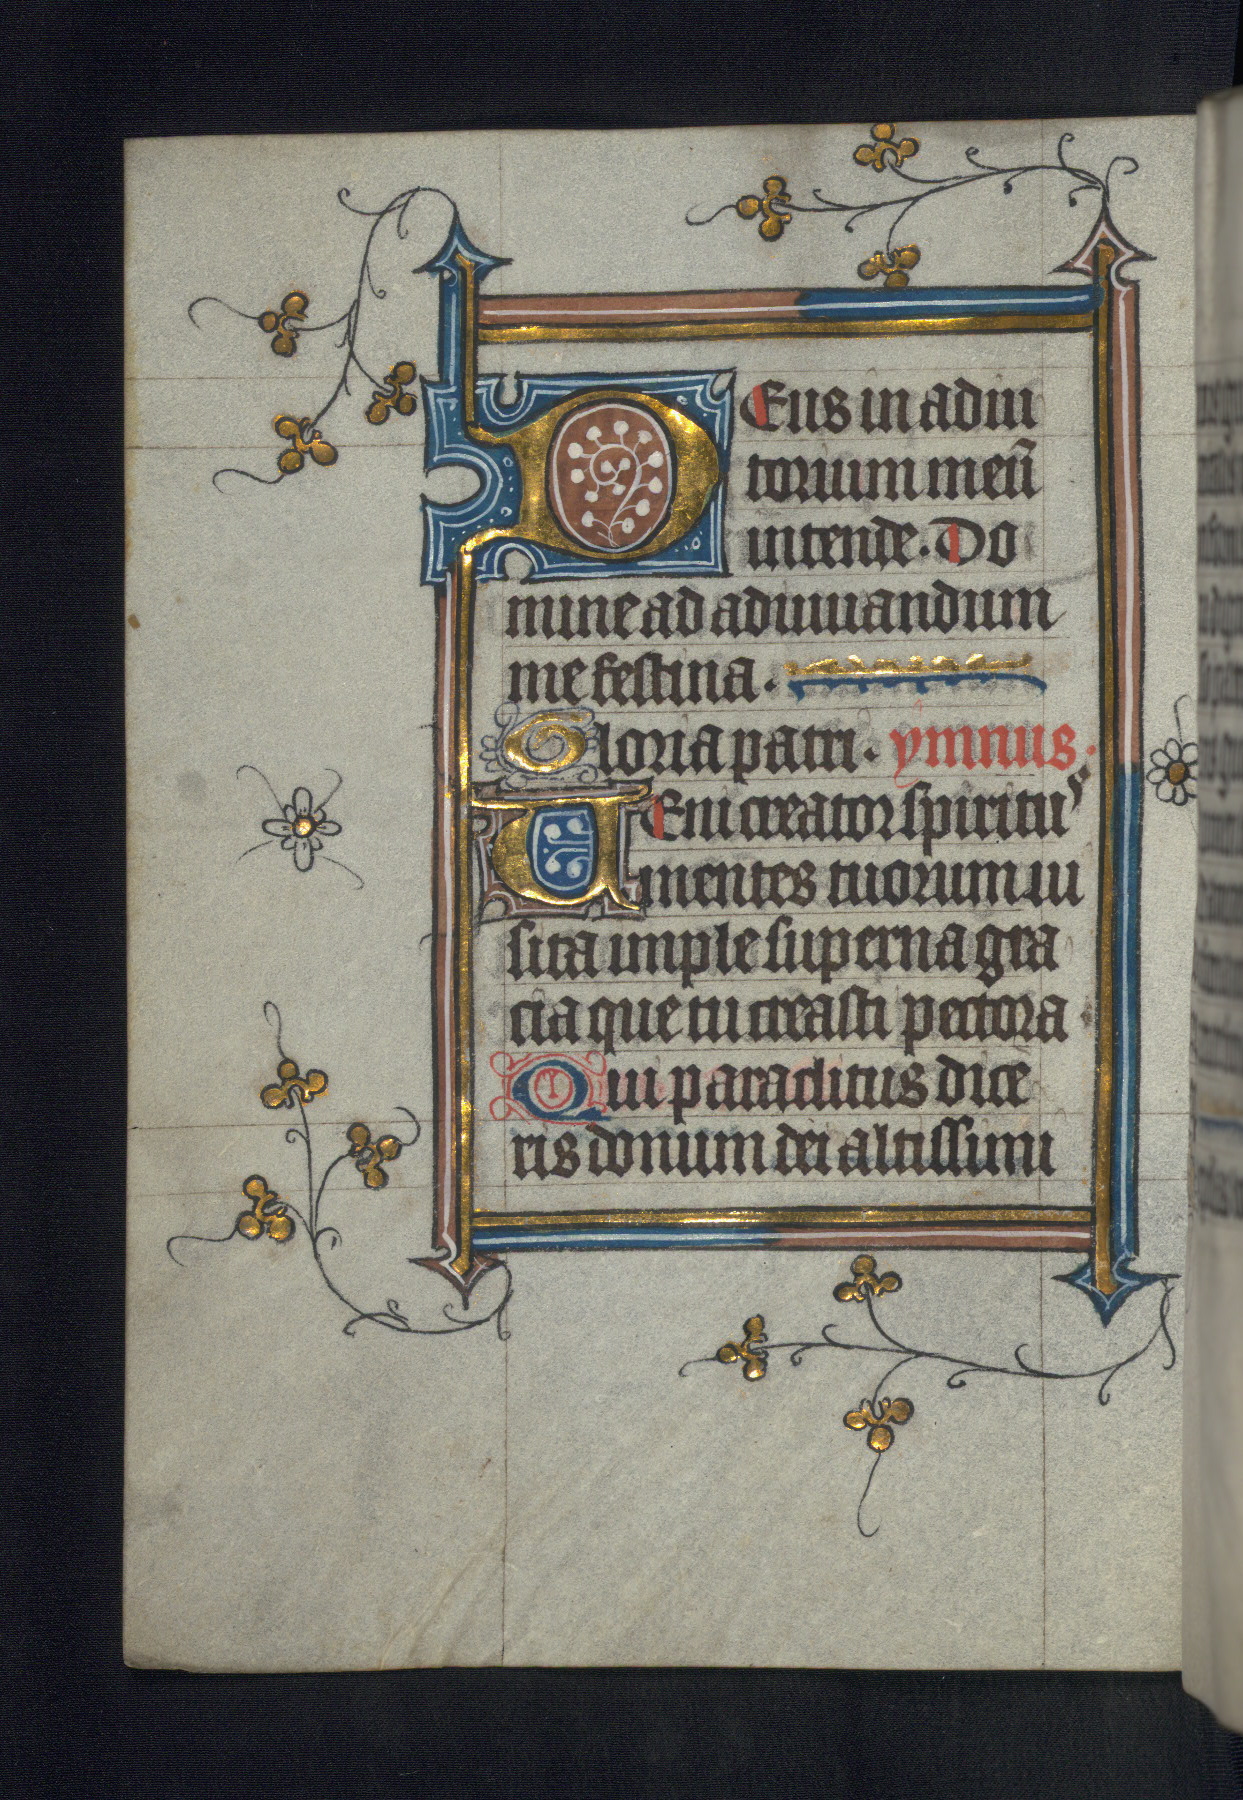 DEus in adiu
torium meu̅
intende. Do
mine ad adiuuandum
me festina.
Gloria patri. ymnus.
UEni creator spiritu⁹
mentes tuorum ui
sita imple superna gra
cia que tu creasti pectora
Qui paraclitus dice
ris donum dei altissimi